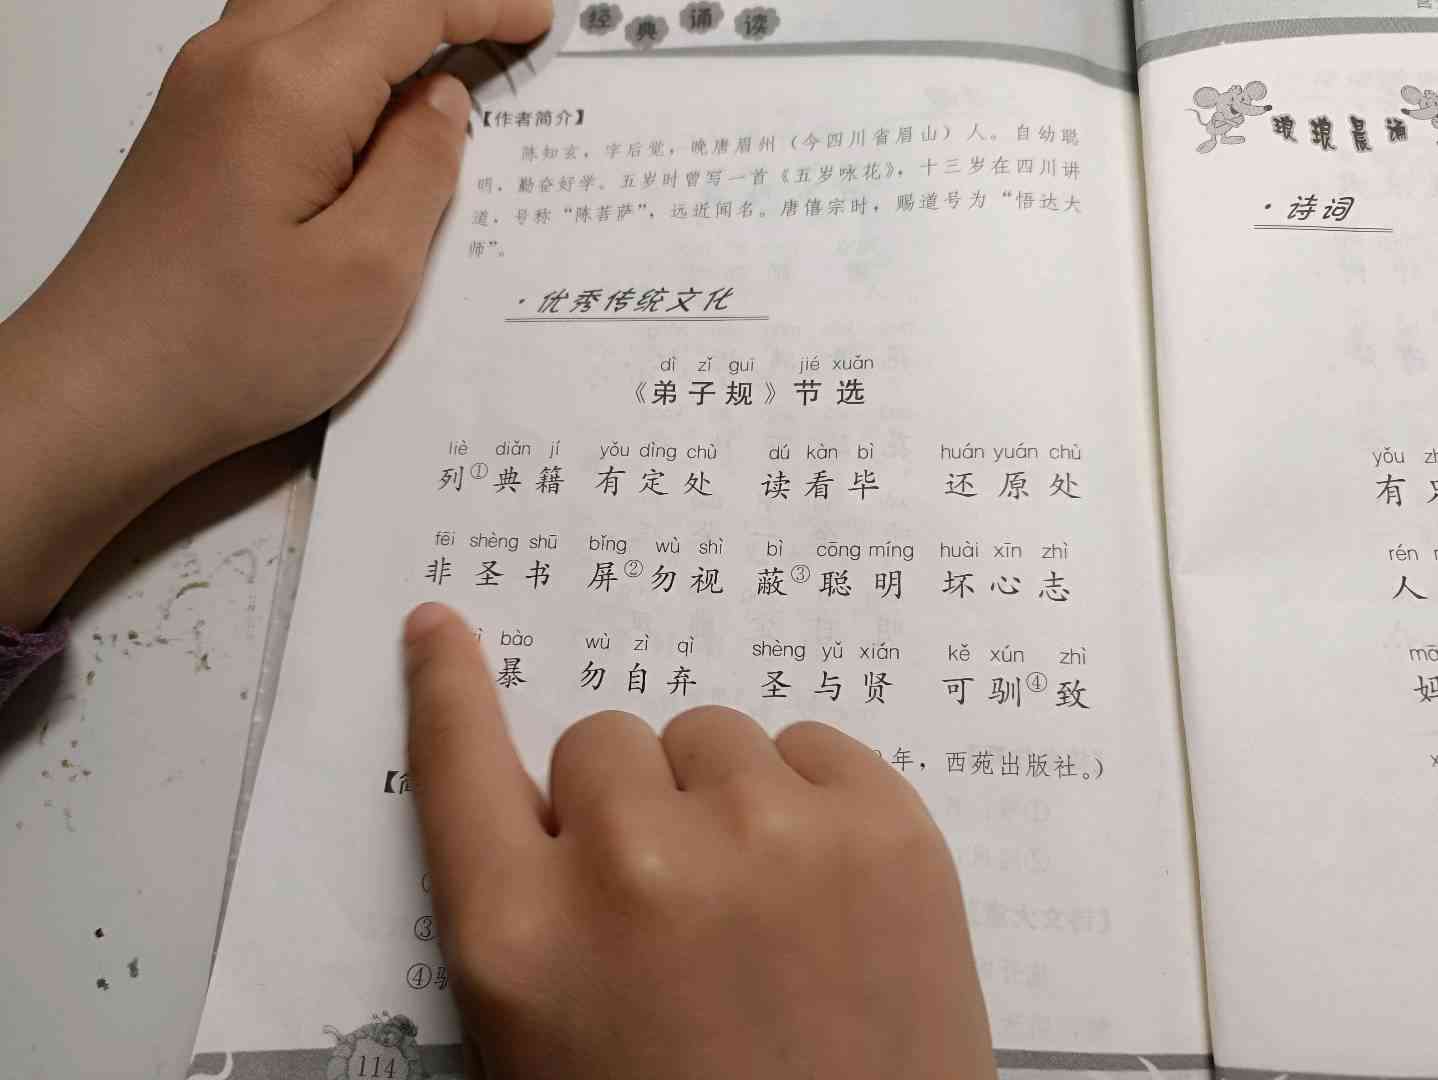 经典诵读
【作者简介】
陈知玄，字后觉，晚唐眉州（今四川省眉山）人。自幼聪
明，勤奋好学。五岁时曾写一首《五岁咏花》，十三岁在四川讲
道，号称“陈菩萨”，远近闻名。唐僖宗时，赐道号为“悟达大
师”。
·优秀传统文化
dì zǐ guī jié xuǎn
《弟子规》节选
liè diǎn jí yǒu dìng chù dú kàn bì huán yuán chù
列①典籍 有定处 读看毕 还原处
fēi shèng shū bǐng wù shì bì cōng míng huài xīn zhì
非圣书 屏②勿视 蔽③聪明 坏心志
bào wù zì qì shèng yǔ xián kě xún zhì
暴 勿自弃 圣与贤 可驯④致
年，西苑出版社。）
【
③
④
114
琅琅晨诵
·诗词
yǒu
有
rén
人